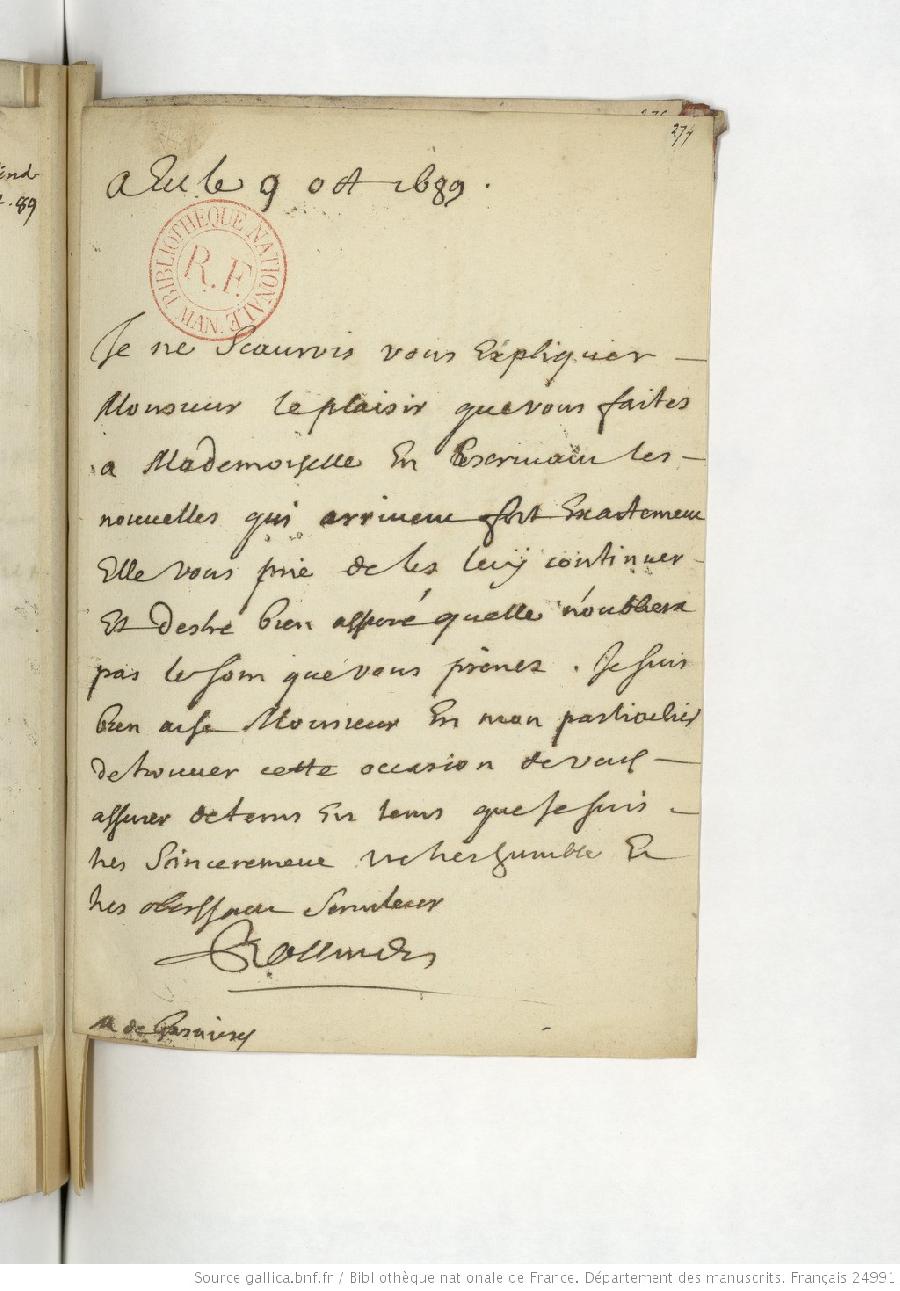 end
.89
274
a Eu le 9 oct 1689.
BIBLIOTHEQUE NATIONALE MAN.
R.F.
Je ne scaurois vous Expliquer
Monsieur le plaisir que vous faites
a Mademoiselle En Escrivant les
nouvelles qui arrivent fort Exactement
Elle vous prie de les luy continuer
Et destre bien assuré quelle n'oubliera
pas le soin que vous prenez. Je suis
bien aise Monsieur En mon particulier
de trouver cette occasion de vous
assurer de tems En tems que Je suis
tres Sinceremeut vre tres humble Et
tres obeissant Serviteur
Rollinde
M de Gasnieres
Source gallica.bnf.fr / Bibliothèque nationale de France. Département des manuscrits. Français 24991